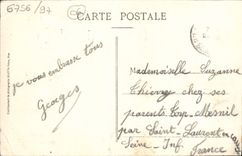 6756/97
CARTE POSTALE
je vous embrasse tous
Georges
Mademoiselle Suzanne
Thierry chez ses
parents Mesnil
par Saint-Laurent en
Seine Inf.
France